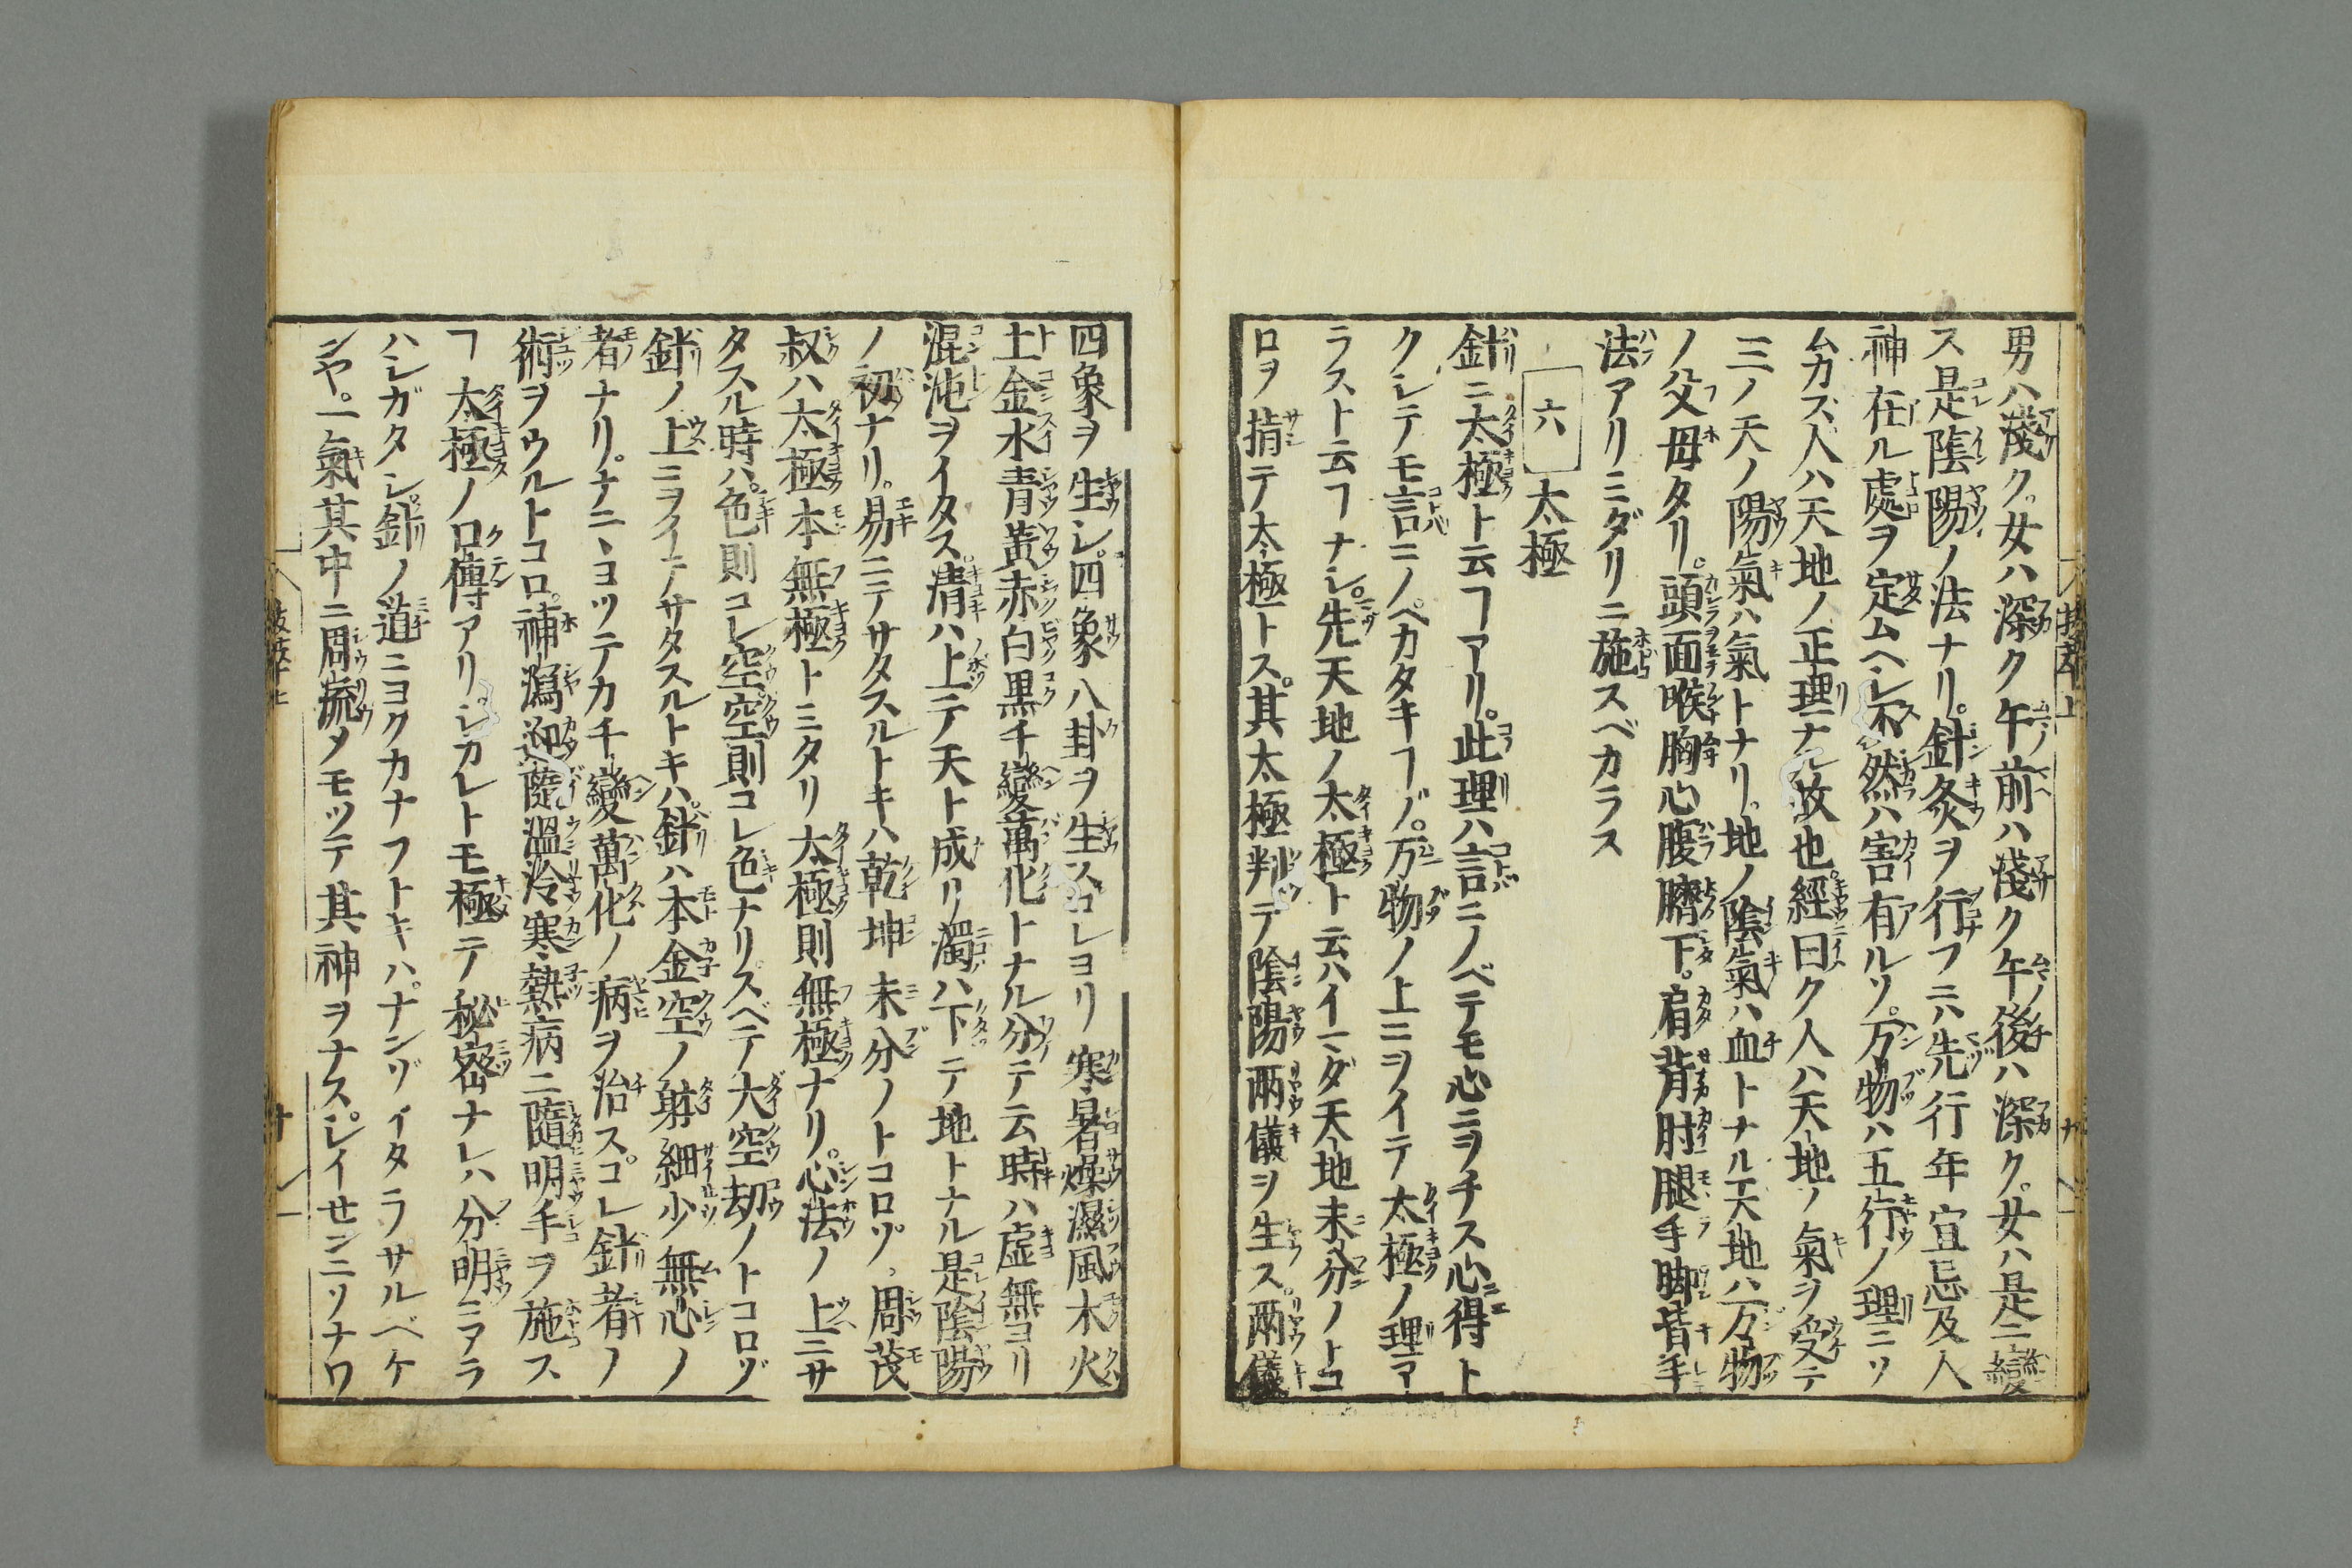 男ハ淺ク。女ハ深ク午ノ前ハ淺ク午ノ後ハ深ク。女ハ是ニ變
ス是陰陽ノ法ナリ。針灸ヲ行フニハ先行年宜忌及人
神在ル處ヲ定ムヘシ不然ハ害有ルソ。万物ハ五行ノ理ニソ
ムカズ人ハ天地ノ正理ナル故也。經曰ク人ハ天地ノ氣ヲ受テ
三ノ天ノ陽氣ハ氣トナリ。地ノ陰氣ハ血トナル天地ハ万物
ノ父母タリ。頭面喉胸心腹臍下。肩背肘腿手脚皆手
法アリミダリニ施スベカラス
六 太極
針ニ太極ト云ヿアリ。此理ハ言ニノベテモ心ニヲチス心得ト
クシテモ言ニノベカタキヿゾ。万物ノ上ニヲイテ太極ノ理ア
ラスト云ヿナシ。先天地ノ太極ト云ハイマダ天地未分ノトコ
ロヲ指テ太極トス。其太極判テ陰陽兩儀ヲ生ス。兩儀
四象ヲ生シ。四象八卦ヲ生スコレヨリ寒暑燥濕風木火
土金水青黃赤白黒千變萬化トナル分テ云時ハ虚無ヨリ
混沌ヲイタス。清ハ上テ天ト成リ濁ハ下テ地トナル是陰陽
ノ初ナリ。易ニテサタスルトキハ乾坤未分ノトコロゾ。周茂
叔ハ太極本無極トミタリ太極則無極ナリ。心法ノ上ニサ
タスル時ハ。色則コレ空空則コレ色ナリスベテ大空劫ノトコロゾ
針ノ上ニヲイテサタスルトキハ。針ハ本金空ノ躰細少無心ノ
者ナリ。ナニヽヨツテカ千變萬化ノ病ヲ治ス。コレ針者ノ
術ヲウルトコロ。補瀉迎隨溫冷寒熱病ニ隨明手ヲ施ス
ヿ太極ノ口傳アリシカレトモ極テ秘密ナレハ分明ニアラ
ハシガタシ。針ノ道ニヨクカナフトキハ。ナンゾイタラサルベケ
ンヤ。一氣其中ニ周流ノモツテ其神ヲナス。レイせンニソナワ